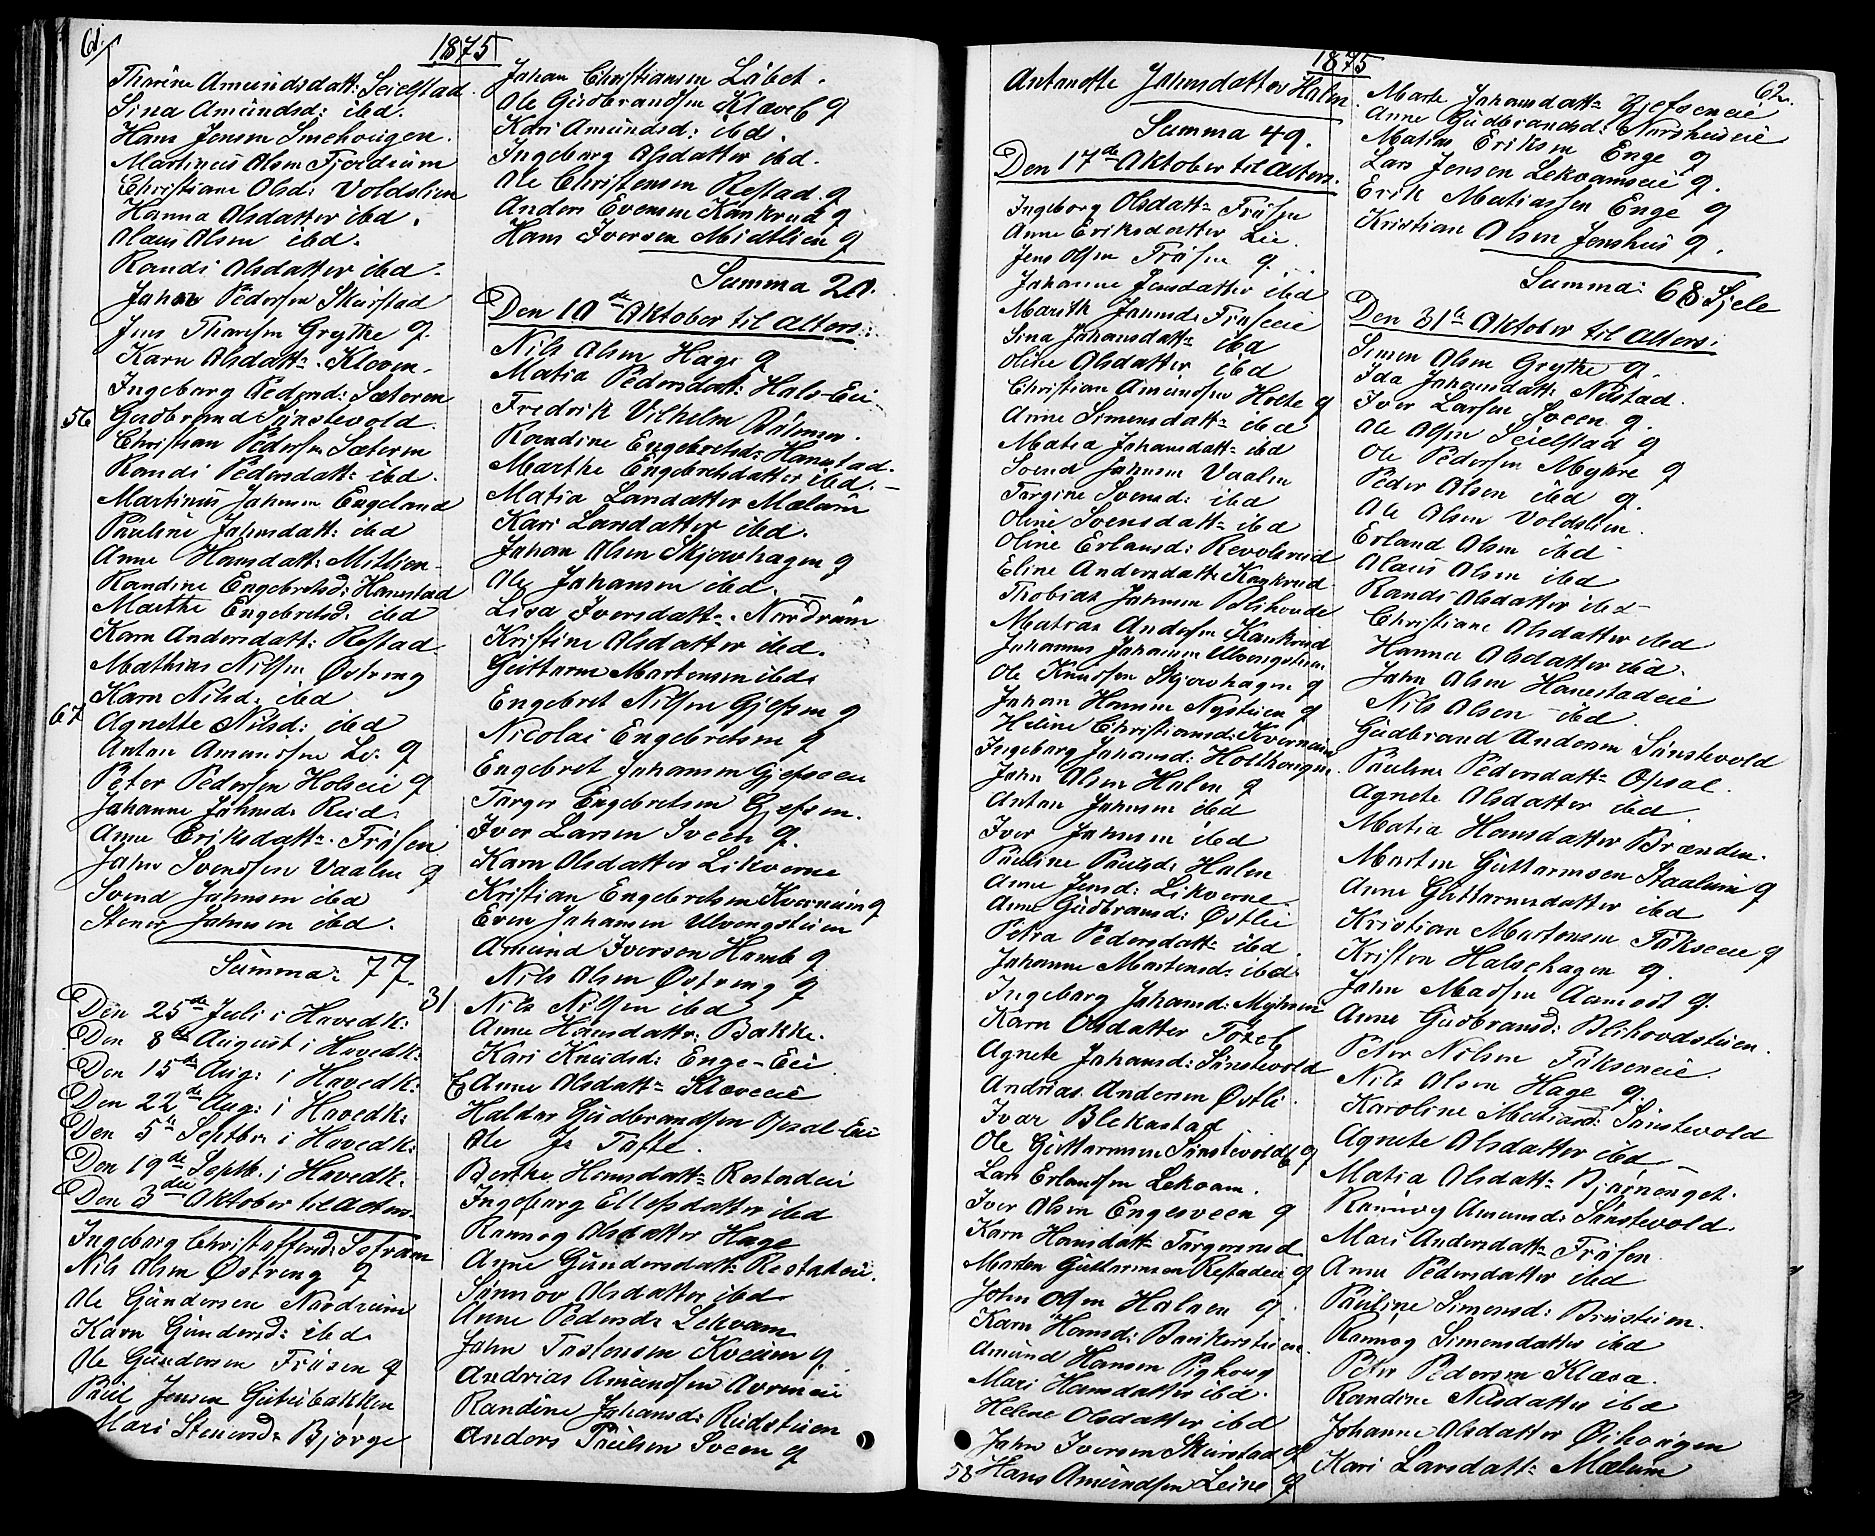 61.
1875
Thorine Amundsdatt: Seielstad
Sina Amundsd: ibd.
Hans Jensen Smehougen.
Martinus Olsen Fjeldium
Christiane Olsd: Voldslien
Hanna Olsdatter ibd.
Olaus Olsen ibd.
Randi Olsdatter ibd.
Johan Pedersen Skurstad
Jens Thoresen Grythe g.
Karn Olsdatt: Kloven.
Ingeborg Pedersd: Sæteren
56 Gudbrand Sønstevold
Christian Pedersen Sæteren
Randi Pedersdatt: ibd.
Martinus Johnsen Engeland
Pauline Johnsdatt: ibd
Anne Hansdatt: Mitlien
Randine Engebretsd: Hanestad
Marthe Engebretsd: ibd
Karn Andersdatt: Restad
Mathias Nilsen Østreng
Karn Nilsd: ibd
67 Agnette Nilsd: ibd
Anton Amundsen Li: g
Peter Pedersen Holseie g
Johanne Johnsd: Reid.
Anne Eriksdatt: Frøsen
John Svendsen Vaalen g
Svend Johnsen ibd
Stener Johnsen ibd.
Summa: 77.
Den 25de Juli i Hovedk:
Den 8de August i Hovedk:
Den 15de Aug: i Hovedk:
Den 22de Aug: i Hovedk:
Den 5te Septbr i Hovedk:
Den 19de Septb. i Hovedk.
Den 3die Oktober til alters.
Ingeborg Christoffersd: Sofram
Nils Olsen Østreng g
Ole Gundersen Nordrum
Karn Gundersd: ibd.
Ole Gundersen Frøsen g
Paul Jensen Guteibakken
Mari Stenersd: Bjørge
Johan Christiansen Løbet.
Ole Gudbrandsen Klæveb g
Kari Amundsd: ibd.
Ingeborg Olsdatter ibd.
Ole Christensen Restad. g
Anders Evensen Kankrud g
Hans Iversen Midtlien g
Summa 20.
Den 10de Oktober til alters:
Nils Olsen Hage g
Matia Pedersdat: Hals-Eie
Fredrik Vilhelm Bøhmer.
Randine Engebretsd: Hanestad.
Marthe Engebretsdatter ibd.
Matia Larsdatter Mælum
Kari Larsdatter ibd.
Johan Olsen Skjowhagen g
Ole Johansen ibd.
Lisa Iversdatt: Nordrum
Kristine Olsdatter ibd.
Guttorm Mortensen ibd.
Engebret Nilsen Gjefsen g
Nicolai Engebretsen g
Engebret Johansen Gjefseeie
Torger Engebretsen Gjefsen.
Iver Larsen Sveen g.
Karn Olsdatter Likverne
Kristian Engebretsen Kverneien g
Even Johansen Ulvengstuen
Amund Iversen Hamb g
Nils Olsen Østreng g
31 Nils Nilsen ibd
Anne Hansdatter Bakke.
Kari Knudsd: Enge-Eie
Anne Olsdatt: Klæveeie
Haldor Gudbrandsen Opsal-Eie
Ole Js Tofte.
Berthe Hansdatt: Restadeie
Ingeborg Ellefsdatter ibd
Rannog Olsdatter Hage
Anne Gundersdatt: Restadeie.
Sønnov Olsdatter ibd.
Anne Pedersd: Lekvam
John Tostensen Kveum g.
Andrias Amundsen Avrmeie
Randine Johansd: Rudstuen
Anders Paulsen Sveen g
1875
62.
Antonette Johnsdatter Holen
Summa 49.
Den 17de Oktober til alters.
Ingeborg Olsdatt: Frøsen
Anne Eriksdatter Lie.
Jens Olsen Frøsen g.
Johanne Jensdatter ibd
Marith Johnsd: Frøseeie
Sina Johansdatt: ibd
Oline Olsdatter ibd
Christian Amundsen Holte g
Anne Simensdatt: ibd
Matea Johansdatt: ibd
Svend Johnsen Vaalen
Torgine Svensd: ibd
Oline Svensdatt: ibd
Oline Erlansd: Revolsrud
Eline Andersdatt: Kankrud
Thobias Johnsen Blihovde
Matias Andersen Kankrud
Johannes Johansen Ulvengstuen
Ole Knudsen Skjowhagen g
Johan Hansen Nystuen g
Heline Christiansd: Kverneien
Ingeborg Johansd: Holthougen
John Olsen Holen g
Anton Johnsen ibd
Iver Johnsen ibd
Pauline Paulsd: Holen
Anne Jensd: Likverne
Anne Gudbransd: Østlie
Petra Pedersdatt: ibd
Johanne Mortensd: ibd
Ingeborg Johansd: Myhren
Karn Olsdatter Toxeb
Agnete Johansd: Sønstevold
Andrias Andersen Østli.
Ivar Blekastad
Ole Guttormsen Sønstevold g
Lars Erlandsen Lekvam.
Iver Olsen Engesveen g
Karn Hansdatt: Torgersrud
Morten Guttormsen Restadeie g
John Olsen Holsen g.
Karn Hansd: Bankerstuen.
Amund Hansen Pighoug
Mari Hansdatter ibd.
Helene Olsdatter ibd
John Iversen Skurstad g
58 Hans Amundsen Leine g
Marte Johansdatt: Gjefseneie
Anne Gudbrandsd: Narshuseie
Matias Eriksen Enge g
Lars Jensen Lekvamseie g.
Erik Matiassen Enge g
Kristian Olsen Jonshus g.
Summa: 68 Sjele
Den 31te Oktober til alters:
Simen Olsen Grythe g.
Ida Johansdatt: Nustad.
Iver Larsen Sveen g.
Ole Olsen Seielstad g
Ole Pedersen Myhre g
Peder Olsen ibd g.
Ole Olsen Voldslien.
Erland Olsen ibd
Olaus Olsen ibd
Randi Olsdatter ibd
Christiane Olsdatter ibd
Hanna Olsdatter ibd.
John Olsen Hanestadeie
Nils Olsen ibd.
Gudbrand Andersen Sønstevold
Pauline Pedersdatt: Opsal.
Agnete Olsdatter ibd.
Matia Hansdatter Brænden.
Morten Guttormsen Staalum g
Anne Guttormsdatter ibd
Kristian Mortensen Tokseeie g
Kristen Halsehagen g.
John Madsen Aamodt g.
Anne Gudbransd: Blihovdstuen.
Peter Nilsen Tokseneie
Nils Olsen Hage g.
Karoline Matiasd: Sønstevold
Agnete Olsdatter ibd
Matia Olsdatt: Bjørnenget.
Rannog Amunsd: Sønstevold.
Mari Andersdatt: Frøsen.
Anne Pedersdatter ibd
Pauline Simensd: Brustuen.
Rannog Simensdatter ibd
Peter Pedersen Klæva.
Randine Nilsdatter ibd
Johanne Olsdatter Øihougen
Kari Larsdatt: Mælum